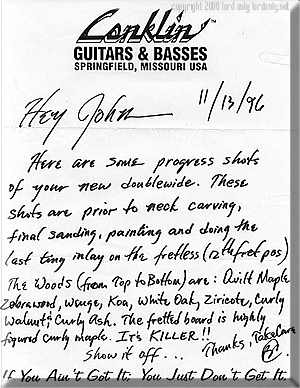 copyright 2000 lord only lordonly.net
Conklin
GUITARS & BASSES
SPRINGFIELD, MISSOURI USA
11/13/96
Hey John
Here are some progress shots
of your new doublewide. These
shots are prior to neck carving,
final sanding, painting and doing the
last ting inlay on the fretless (12th fret pos)
The Woods (from Top to Bottom) are: Quilt Maple
Zebrawood, Wenge, Koa, White Oak, Ziricote, Curly
Walnut; Curly Ash. The fretted board is highly
figured curly maple. It's KILLER!!
Show it off... Thanks, Take Care
If You Ain't Got It, You Just Don't Got It.